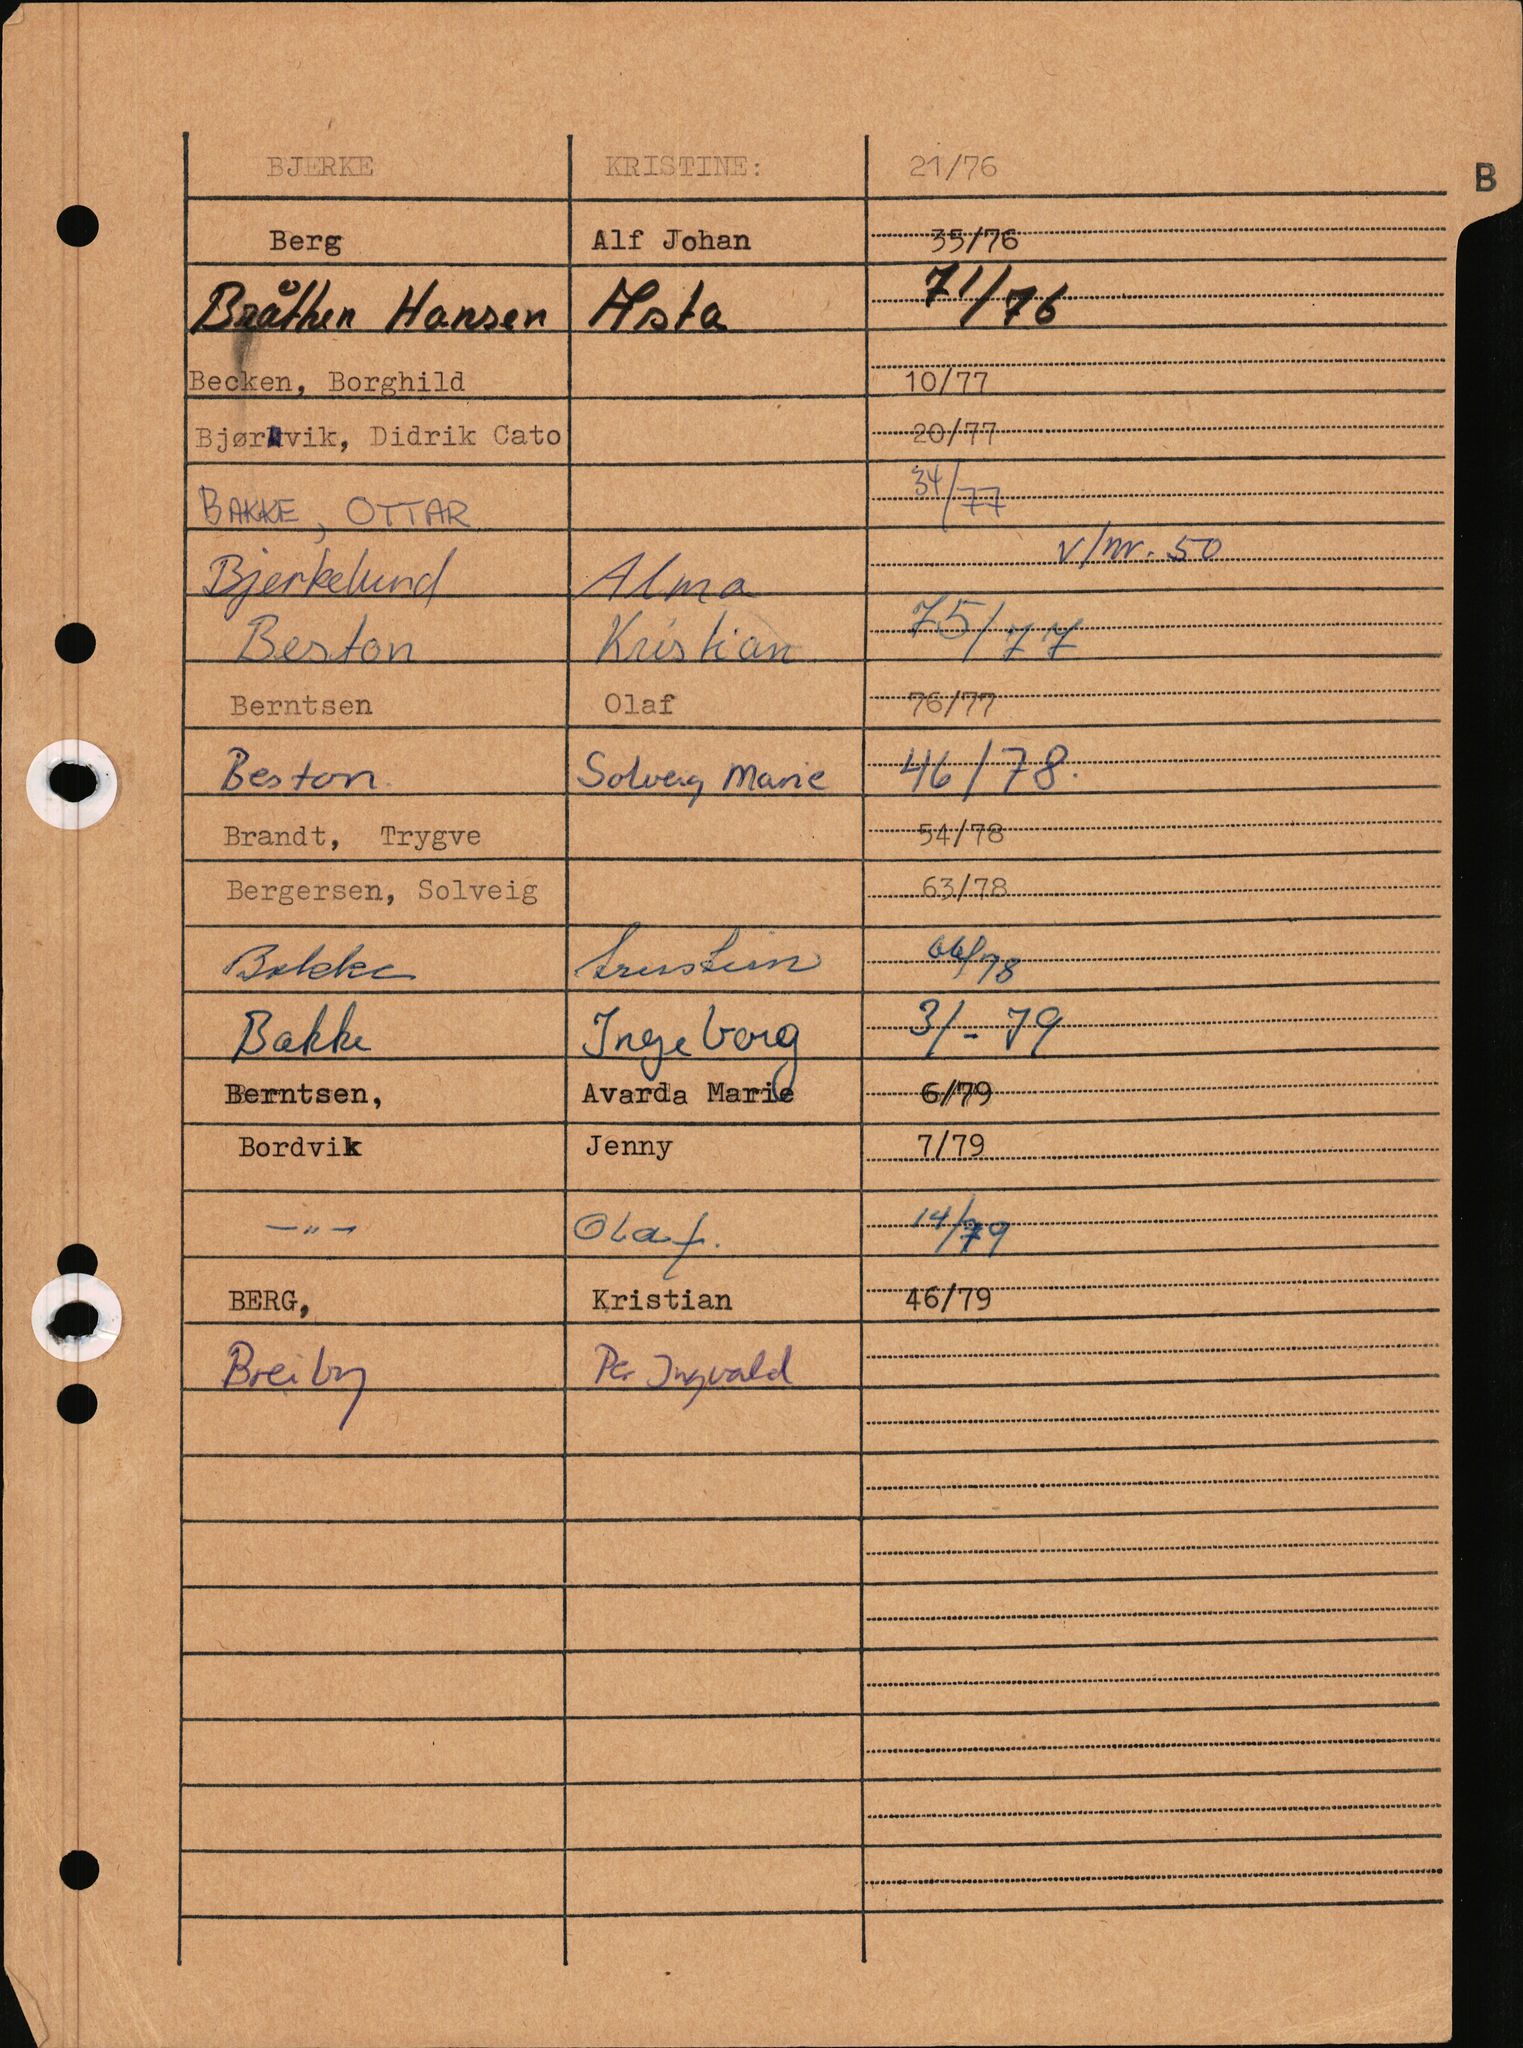 BJERKE KRISTINE: 21/76
B
Berg Alf Johan 35/76
Bråthen Hansen Asta 71/76
Becken, Borghild 10/77
Bjørkvik, Didrik Cato 20/77
BAKKE, OTTAR 34/77
Bjerkelund Alma v/nr. 50
Beston Kristian 75/77
Berntsen Olaf 76/77
Beston Solveig Marie 46/78.
Brandt, Trygve 54/78
Bergersen, Solveig 63/78
Bakke 66/78
Bakke Ingeborg 3/- 79
Berntsen, Avarda Marie 6/79
Bordvik Jenny 7/79
—"— Olaf. 14/79
BERG, Kristian 46/79
Breiby Per Ingvald